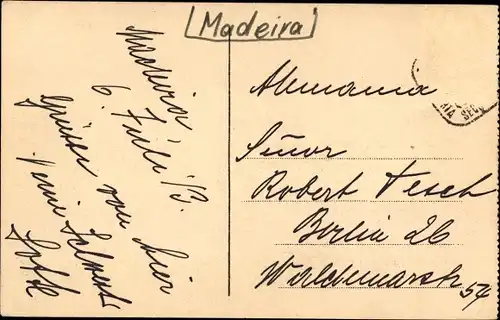 [Madeira]
Madeira
6. Juli 13.
Grüsse von hier
Alemania
Senor
Robert Tesch
Berlin 26
Waldemarstr 54